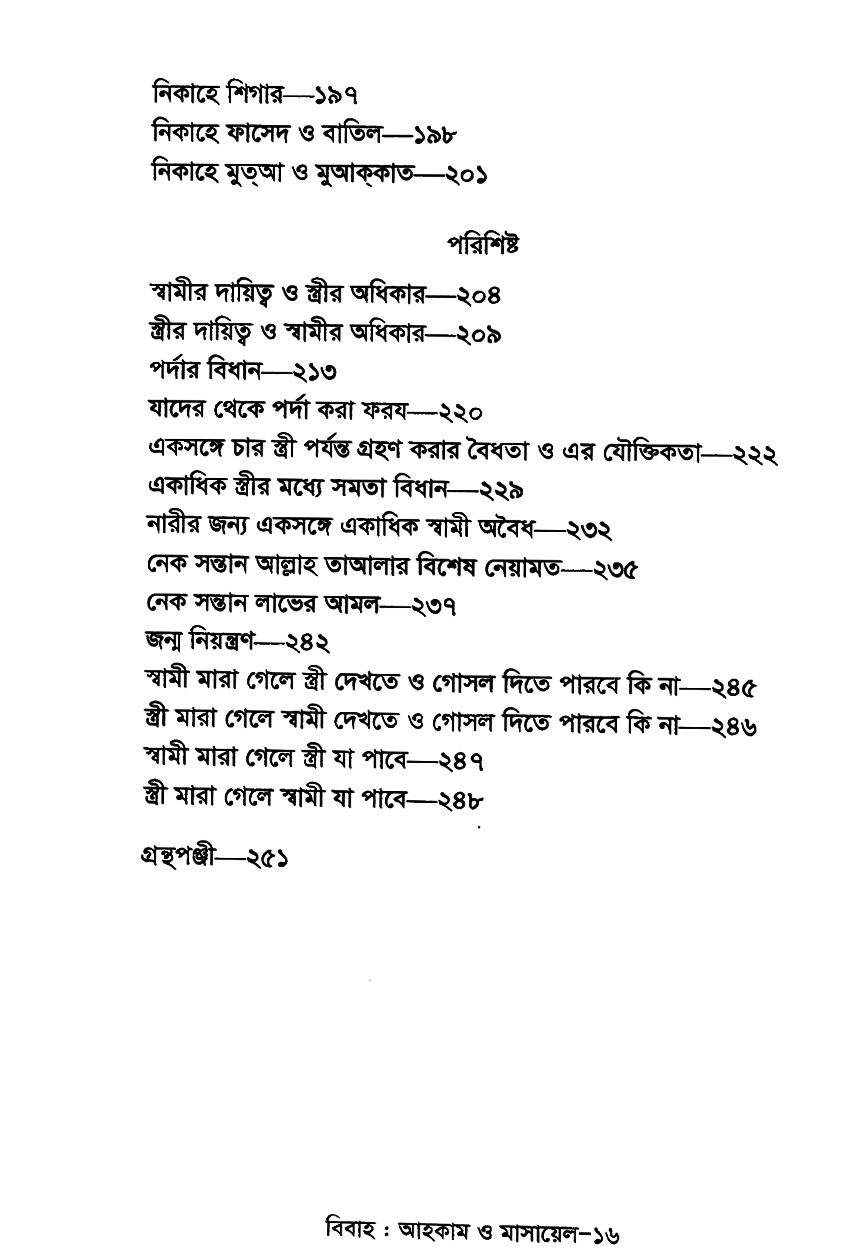 নিকাহে শিগার—১৯৭
নিকাহে ফাসেদ ও বাতিল—১৯৮
নিকাহে মুত্আ ও মুআক্কাত—২০১
পরিশিষ্ট
স্বামীর দায়িত্ব ও স্ত্রীর অধিকার—২০৪
স্ত্রীর দায়িত্ব ও স্বামীর অধিকার—২০৯
পর্দার বিধান—২১৩
যাদের থেকে পর্দা করা ফরয—২২০
একসঙ্গে চার স্ত্রী পর্যন্ত গ্রহণ করার বৈধতা ও এর যৌক্তিকতা—২২২
একাধিক স্ত্রীর মধ্যে সমতা বিধান—২২৯
নারীর জন্য একসঙ্গে একাধিক স্বামী অবৈধ—২৩২
নেক সন্তান আল্লাহ তাআলার বিশেষ নেয়ামত—২৩৫
নেক সন্তান লাভের আমল—২৩৭
জন্ম নিয়ন্ত্রণ—২৪২
স্বামী মারা গেলে স্ত্রী দেখতে ও গোসল দিতে পারবে কি না—২৪৫
স্ত্রী মারা গেলে স্বামী দেখতে ও গোসল দিতে পারবে কি না—২৪৬
স্বামী মারা গেলে স্ত্রী যা পাবে—২৪৭
স্ত্রী মারা গেলে স্বামী যা পাবে—২৪৮
গ্রন্থপঞ্জী—২৫১
বিবাহ : আহকাম ও মাসায়েল-১৬